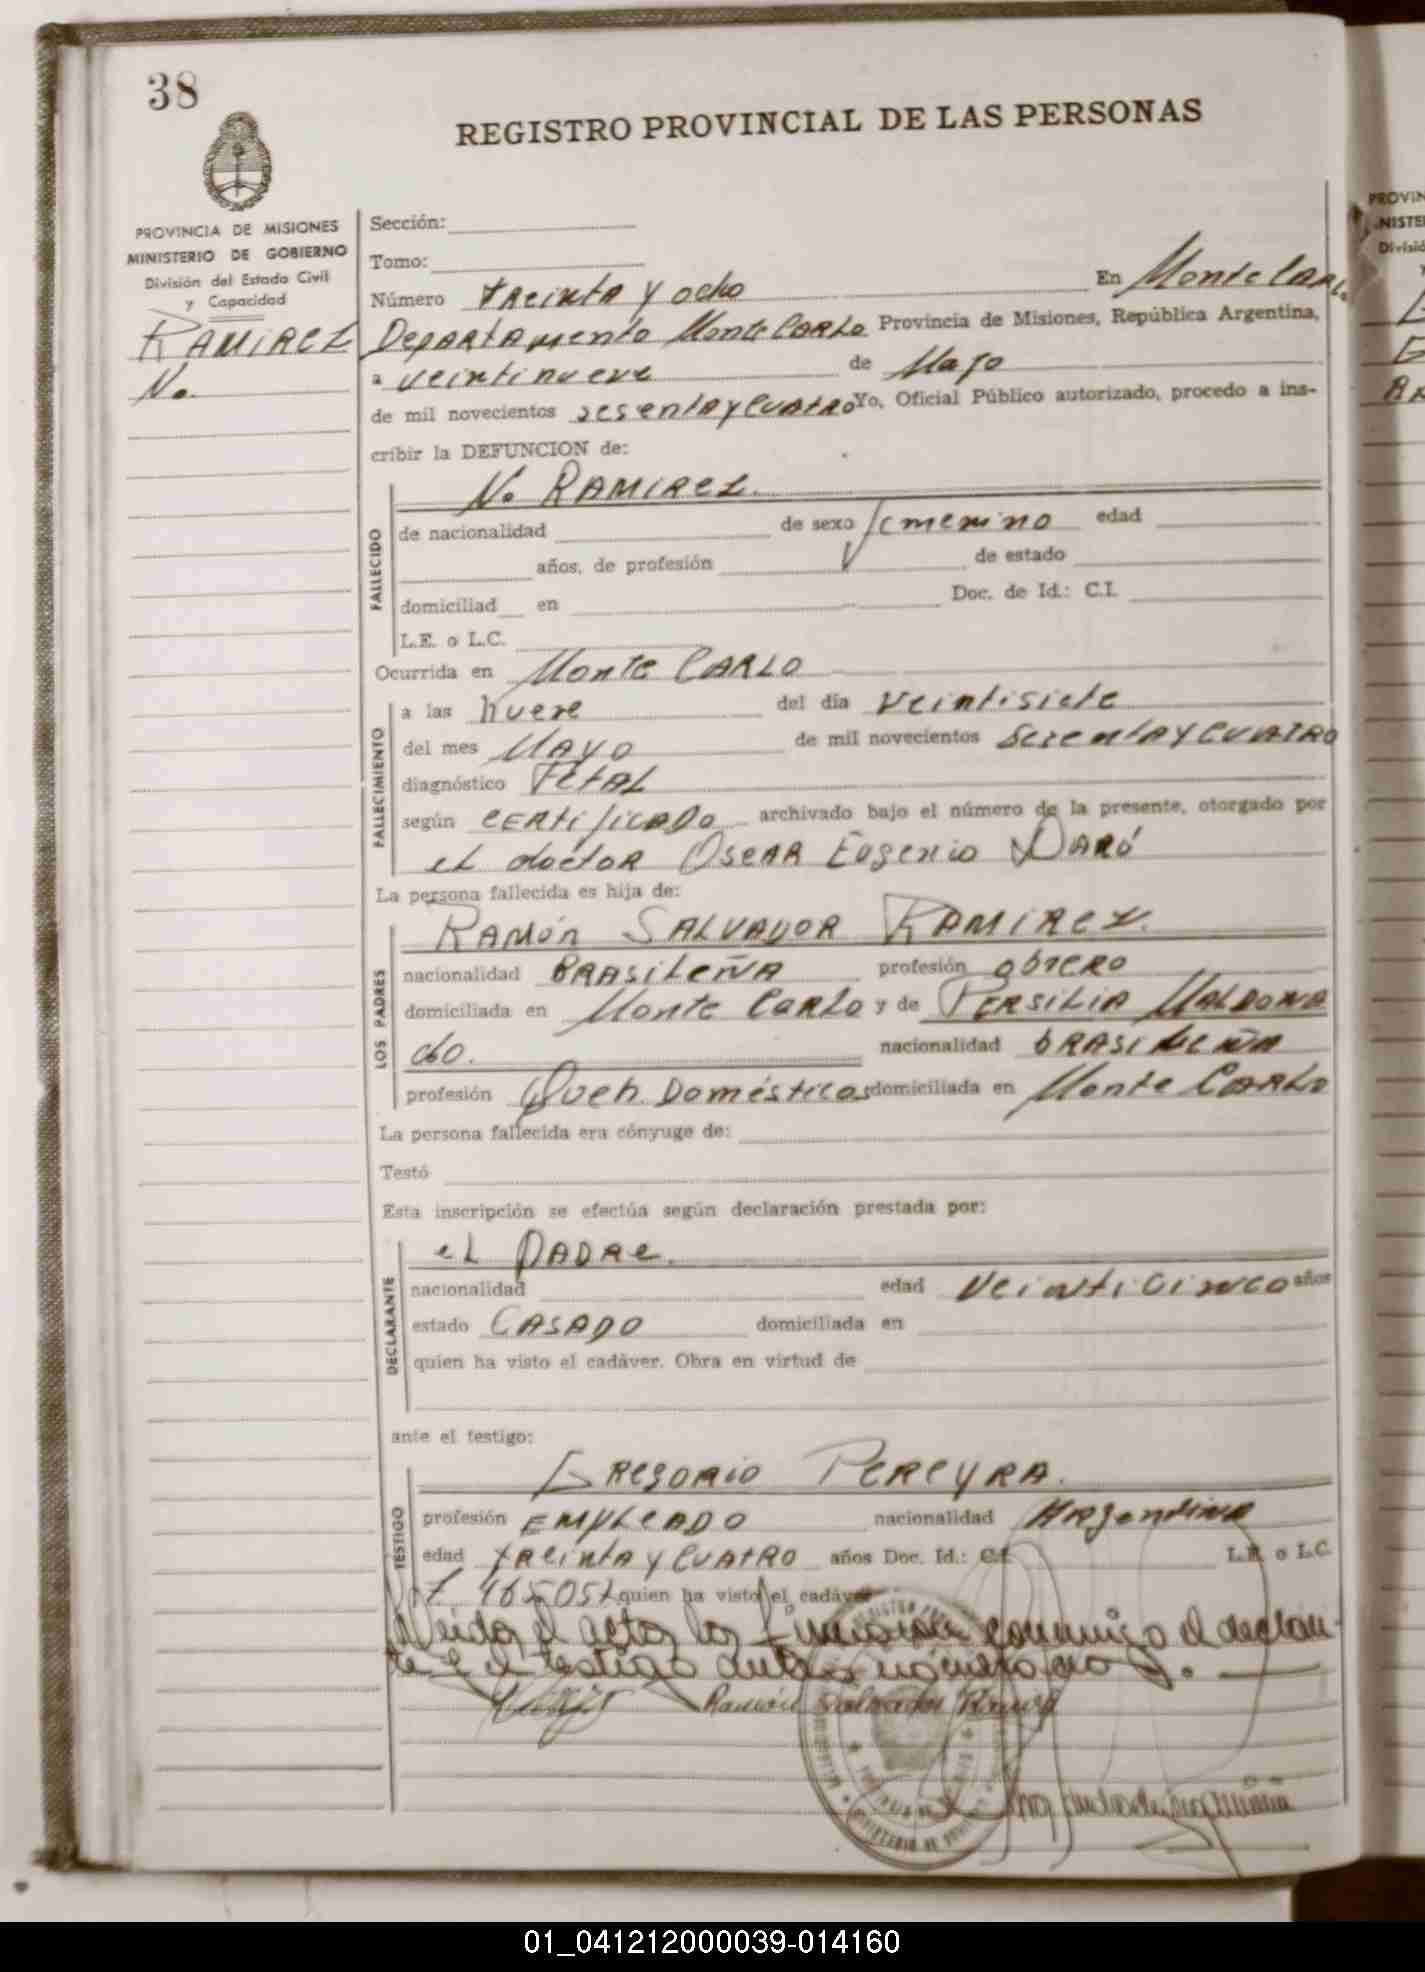 38
REGISTRO PROVINCIAL DE LAS PERSONAS
PROVINCIA DE MISIONES
MINISTERIO DE GOBIERNO
División del Estado Civil
y Capacidad
RAMIREZ
N.
Sección:
Tomo:
Número treinta y ocho En Monte Carlo
Departamento Monte Carlo Provincia de Misiones, República Argentina,
a veintinueve de Mayo
de mil novecientos sesenta y cuatro Yo, Oficial Público autorizado, procedo a ins-
cribir la DEFUNCION de:
FALLECIDO
N. RAMIREZ.
de nacionalidad de sexo femenino edad
años, de profesión de estado
domiciliad en Doc. de Id.: C.I.
L.E. o L.C.
Ocurrida en Monte Carlo
FALLECIMIENTO
a las nueve del día veintisiete
del mes Mayo de mil novecientos sesenta y cuatro
diagnóstico Fetal
según certificado archivado bajo el número de la presente, otorgado por
el doctor Oscar Eugenio Daró
La persona fallecida es hija de:
LOS PADRES
Ramón Salvador Ramirez.
nacionalidad brasileña profesión obrero
domiciliada en Monte Carlo y de Persilia Maldona
do. nacionalidad brasileña
profesión Queh. Domésticos domiciliada en Monte Carlo
La persona fallecida era cónyuge de:
Testó
Esta inscripción se efectúa según declaración prestada por:
DECLARANTE
el Padre.
nacionalidad edad veinticinco años
estado Casado domiciliada en
quien ha visto el cadáver. Obra en virtud de
ante el testigo:
TESTIGO
Gregorio Pereyra.
profesión Empleado nacionalidad Argentina
edad treinta y cuatro años Doc. Id.: C.I. L.E. o L.C.
quien ha visto el cadáver
Leída el acta la conmigo el declaran-
te y el testigo
Ramón Salvador Ramirez
01_041212000039-014160